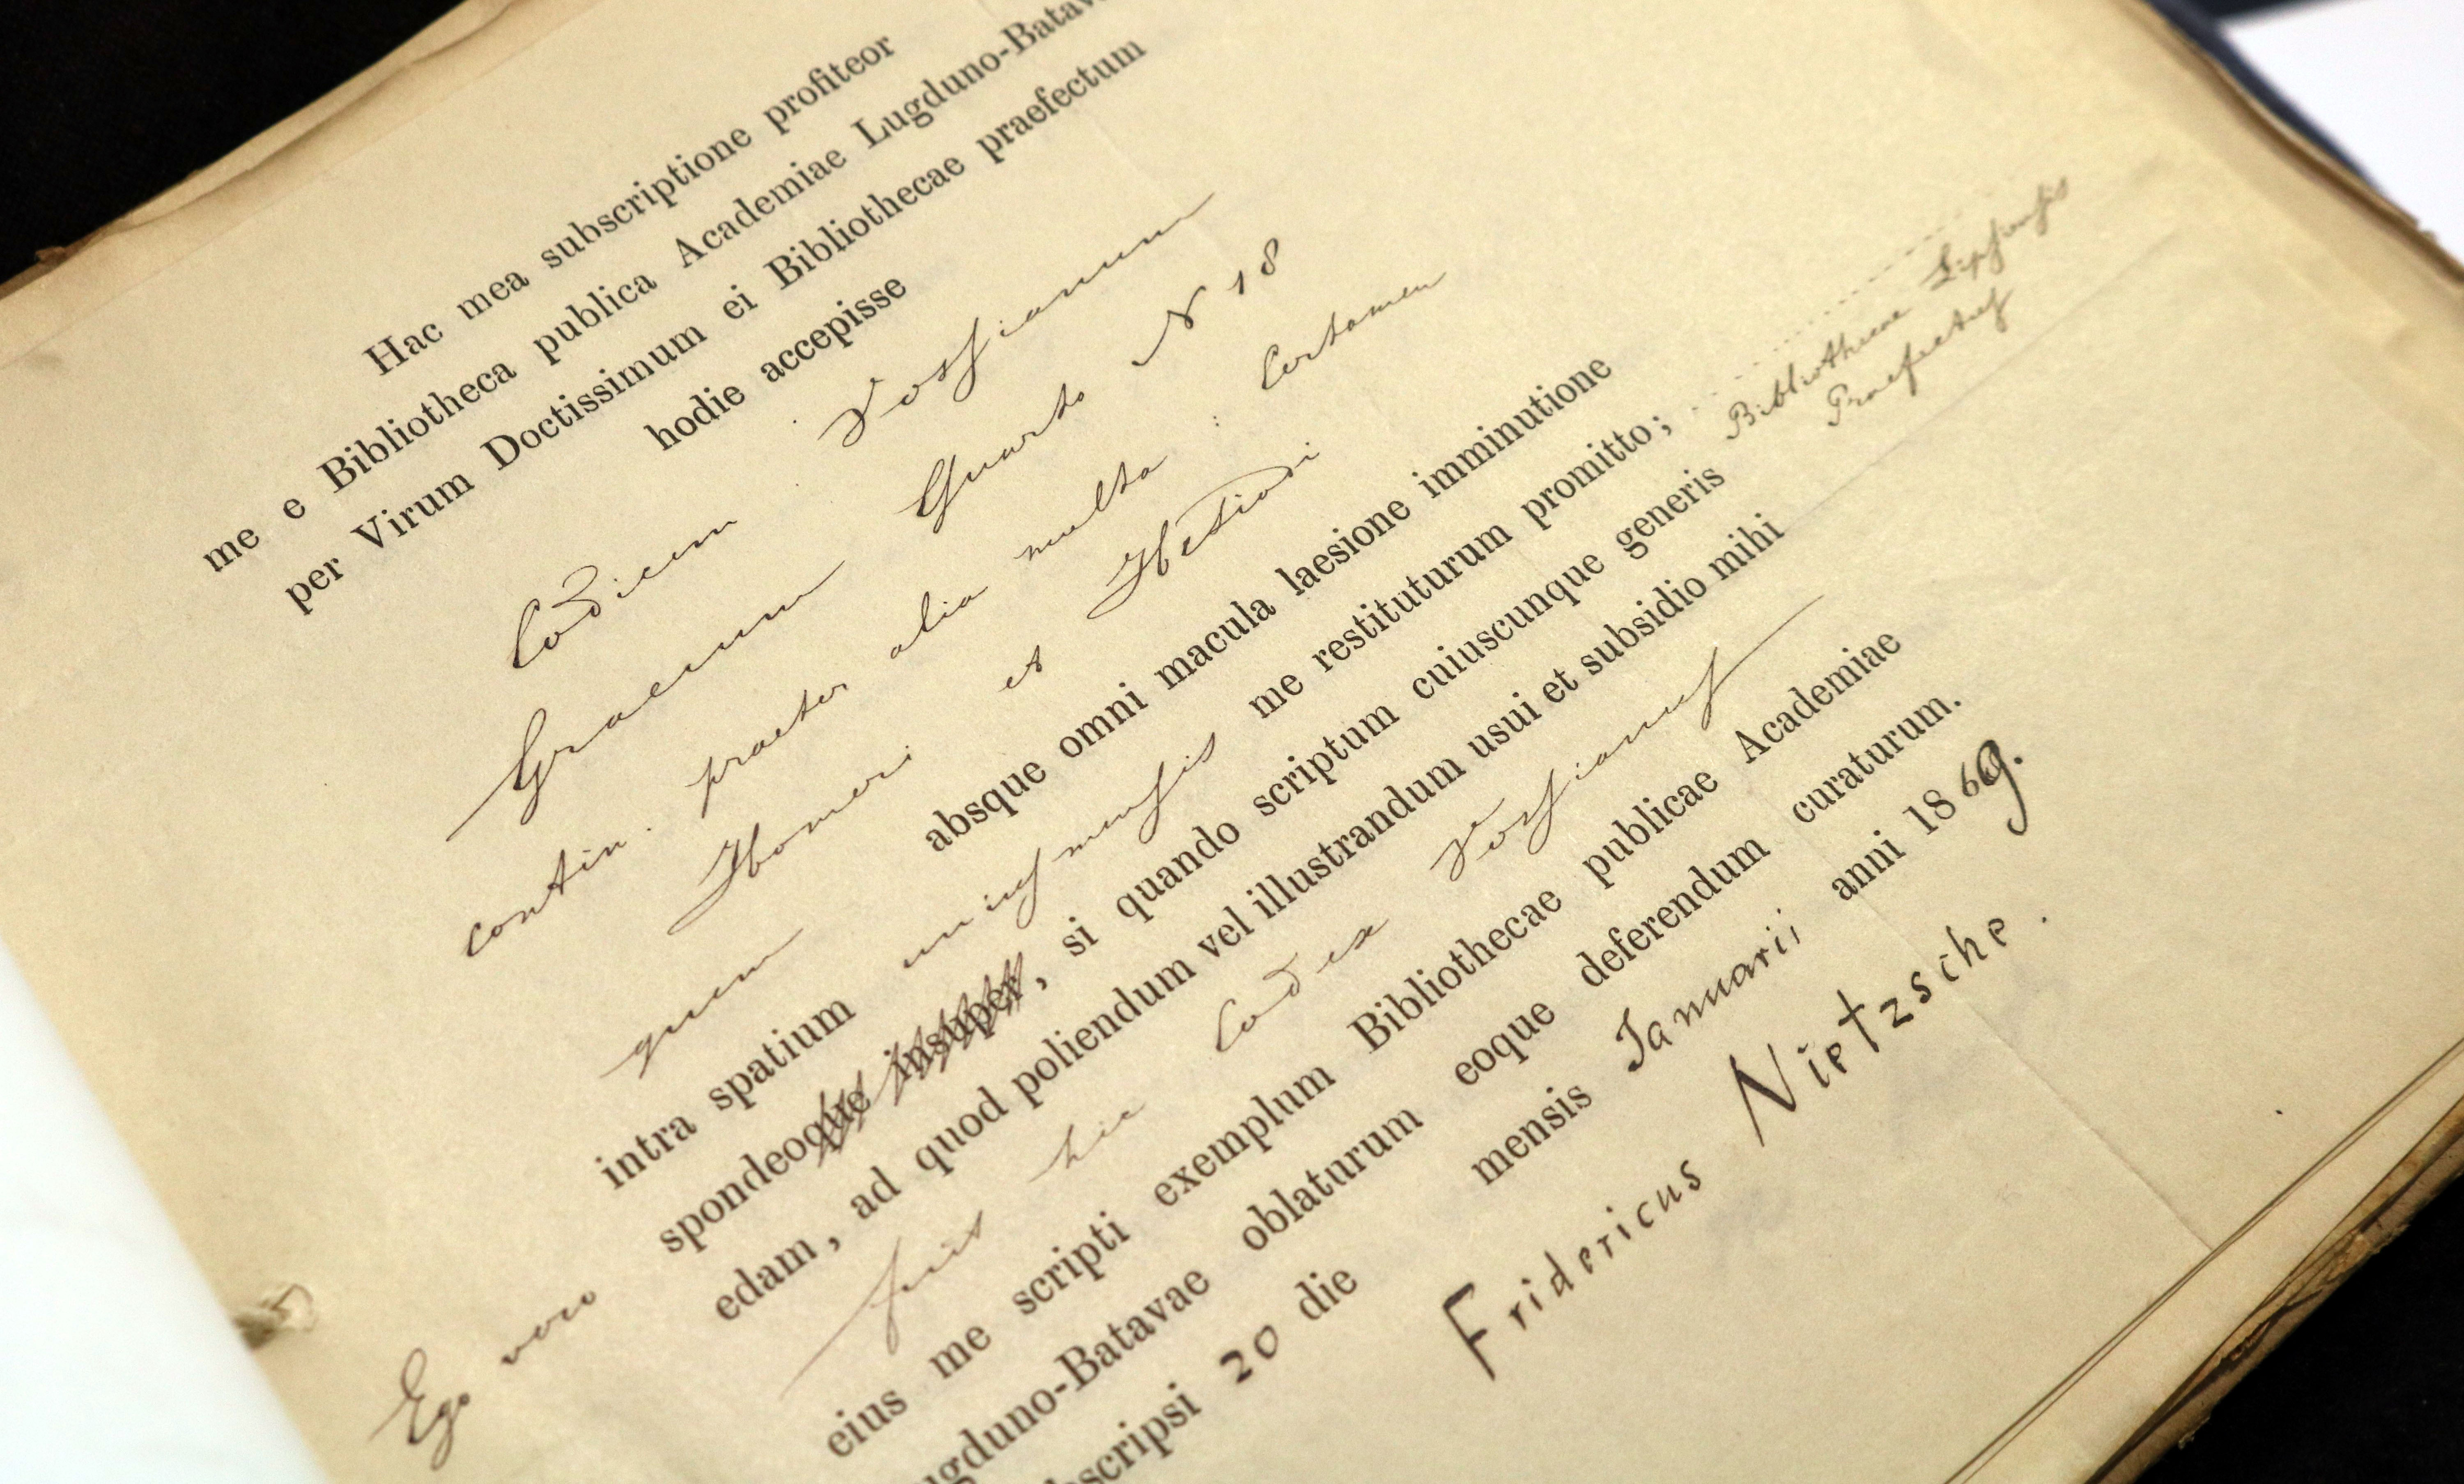 Hac mea subscriptione profiteor
me e Bibliotheca publica Academiae Lugduno-Batav
per Virum Doctissimum ei Bibliothecae praefectum
hodie accepisse
Codicem Vossianum
Graecum Quarto N 18
contin. praeter alia multa : Certamen
Homeri et Hesiodi
quem absque omni macula laesione imminutione
intra spatium unius mensis me restituturum promitto;
Bibliothecae Lipsiensis
Praefectus
Ego vero spondeoque insuper, si quando scriptum cuiuscunque generis
edam, ad quod poliendum vel illustrandum usui et subsidio mihi
fuit hic Codex Vossianus
eius me scripti exemplum Bibliothecae publicae Academiae
gduno-Batavae oblaturum eoque deferendum curaturum.
bscripsi 20 die mensis Ianuarii anni 1869.
Fridericus Nietzsche.